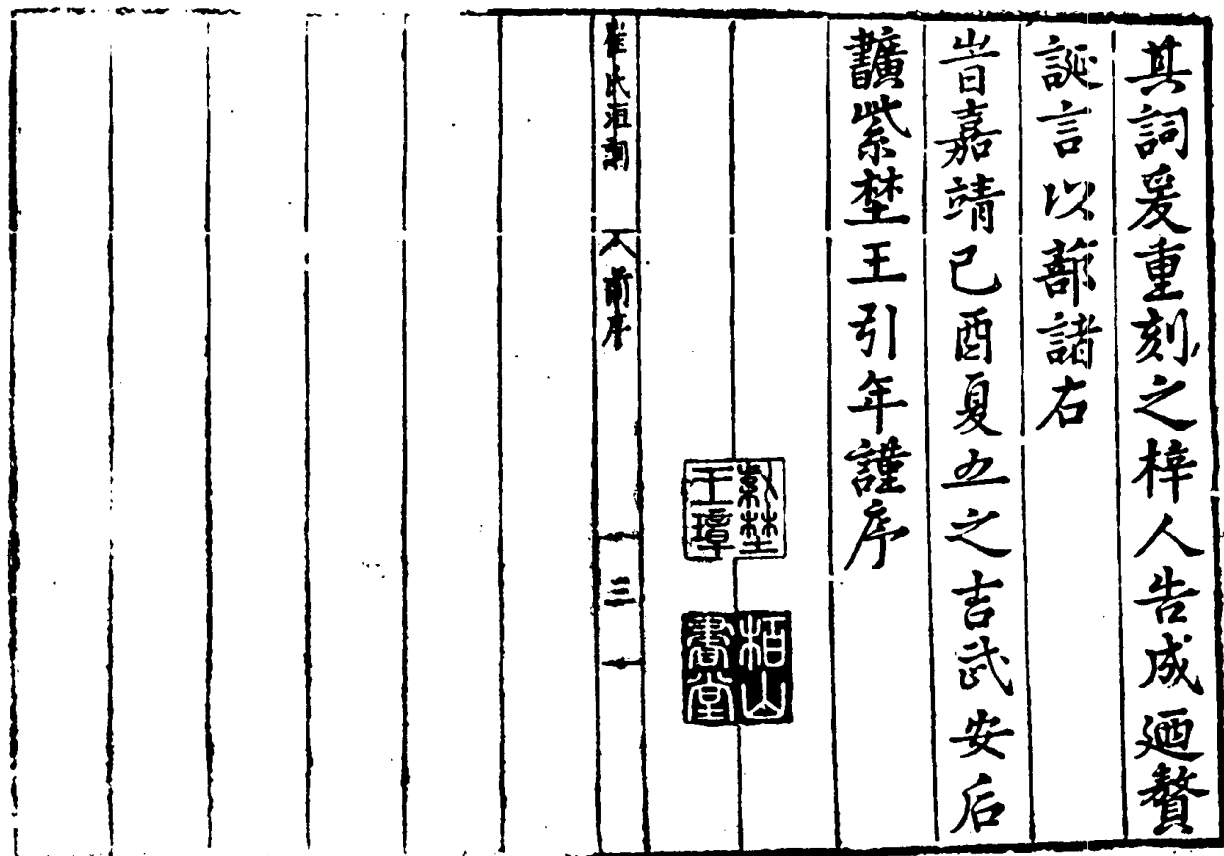 其詞爰重刻之梓人告成廼贅
誕言以蔀諸右
旹嘉靖己酉夏五之吉武安后
學紫埜王引年謹序
紫埜
王璋
栢山
書堂
崔氏洹詞
前序
三